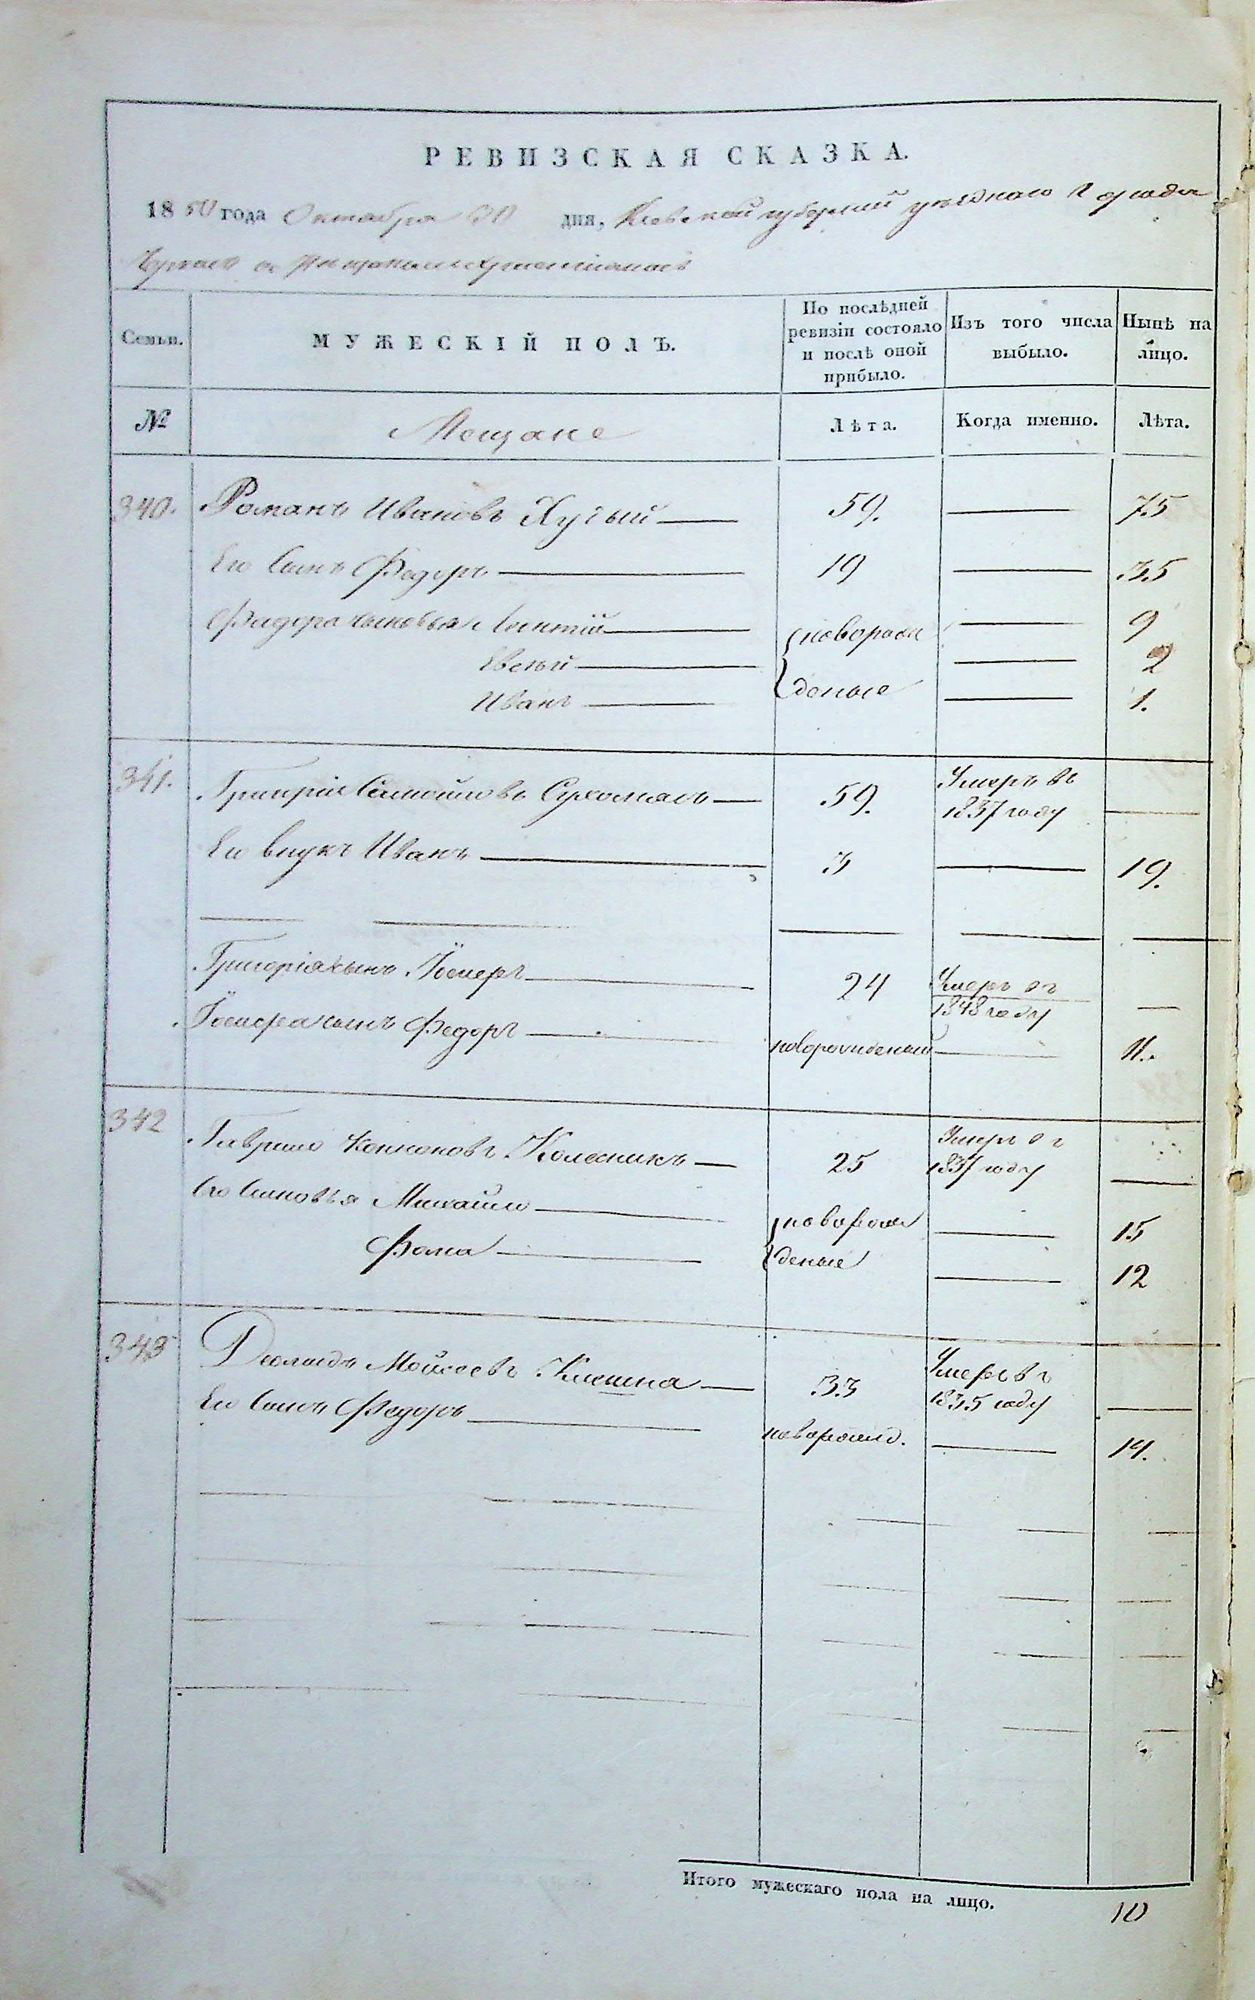 РЕВИЗСКАЯ СКАЗКА.
1850 года Октября 30 дня, Киевской губернии уезднаго Города
о Мещанахъ христіанахъ
Семьи. МУЖЕСКІЙ ПОЛЪ. По послѣдней ревизіи состояло и послѣ оной прибыло. Изъ того числа выбыло. Нынѣ на лицо.
№ Мещане Лѣта. Когда именно. Лѣта.
340. Романъ Ивановъ Худый 59. 75
Его Сынъ Федоръ 19 35
Федора сыновья Леонтій новорож 9
Евсѣй 2
Иванъ деные 1.
341. Григорій Самойловъ Сухомлинъ 59. Умеръ въ 1837 году
Его внукъ Иванъ 3 19.
Григорія сынъ 24 Умеръ въ 1848 году
сынъ Федоръ новорожденный 11.
342 Гаврило Кононовъ Колесникъ 25 Умеръ въ 1837 году
Его Сыновья Михайло новорож 15
Фома деные 12
343 Мойсеевъ 33 Умеръ въ 1835 году
Его Сынъ Федоръ новорожд. 14.
Итого мужескаго пола на лицо. 10